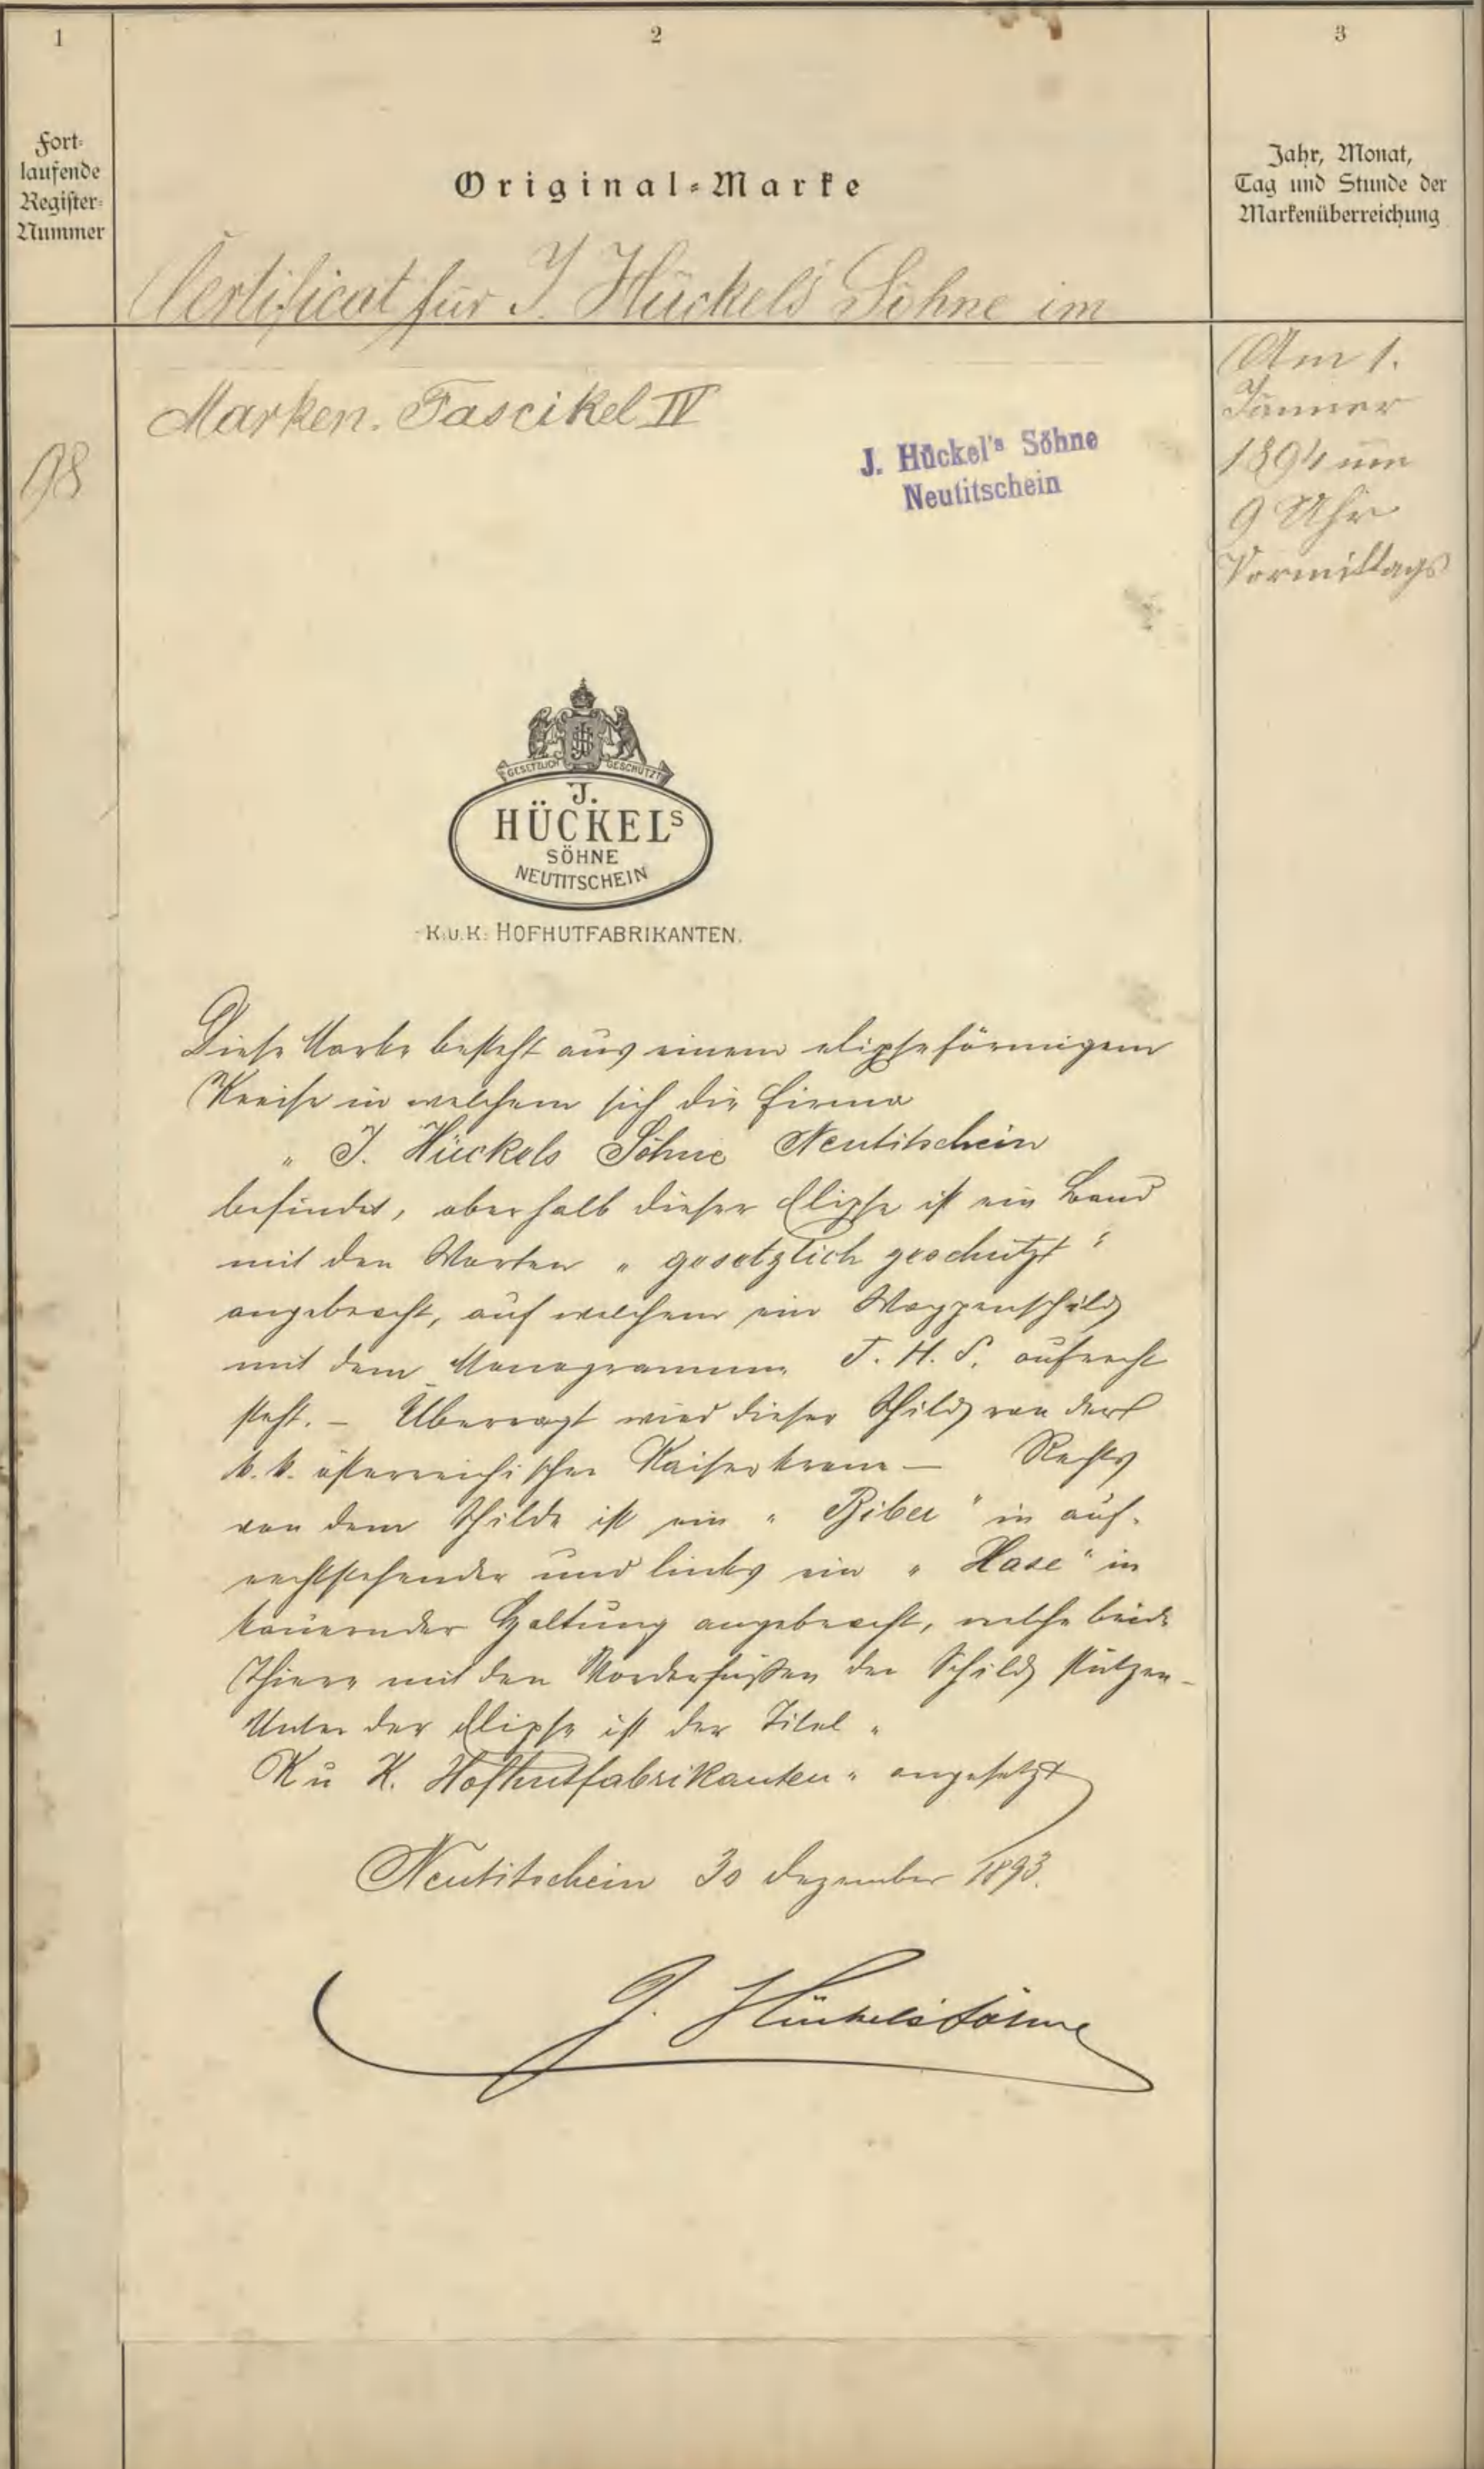 1
2
3
Fort-
laufende
Register-
Nummer
Original-Marke
Jahr, Monat,
Tag und Stunde der
Markenüberreichung
Certificat für J. Hückels Söhne im
Marken. Fascikel IV
98
Am 1.
Jänner
1894 um
9 Uhr
Vormittags
J. Hückel's Söhne
Neutitschein
GESETZLICH GESCHÜTZT
J.
HÜCKELS
SÖHNE
NEUTITSCHEIN
K.U.K. HOFHUTFABRIKANTEN.
Diese Marke besteht aus einem elipseförmigem
Kreise in welchem sich die Firma
„ J. Hückels Söhne Neutitschein
befindet, oberhalb dieser Elipse ist ein Band
mit den Worten „ gesetzlich geschützt "
angebracht, auf welchem ein Wappenschild
mit dem Monogramm J. H. S. aufrecht
steht. – Überragt wird dieser Schild von der
k. k. österreichischen Kaiserkrone – Rechts
von dem Schilde ist ein „ Biber " in auf-
rechtstehender und links ein „ Hase " in
kauernder Haltung angebracht, welche beide
Thiere mit den Vorderfüßen den Schild stützen –
Unter der Elipse ist der Titel „
K u K. Hofhutfabrikanten " angesetzt
Neutitschein 30 Dezember 1893.
J. Hückel's Söhne